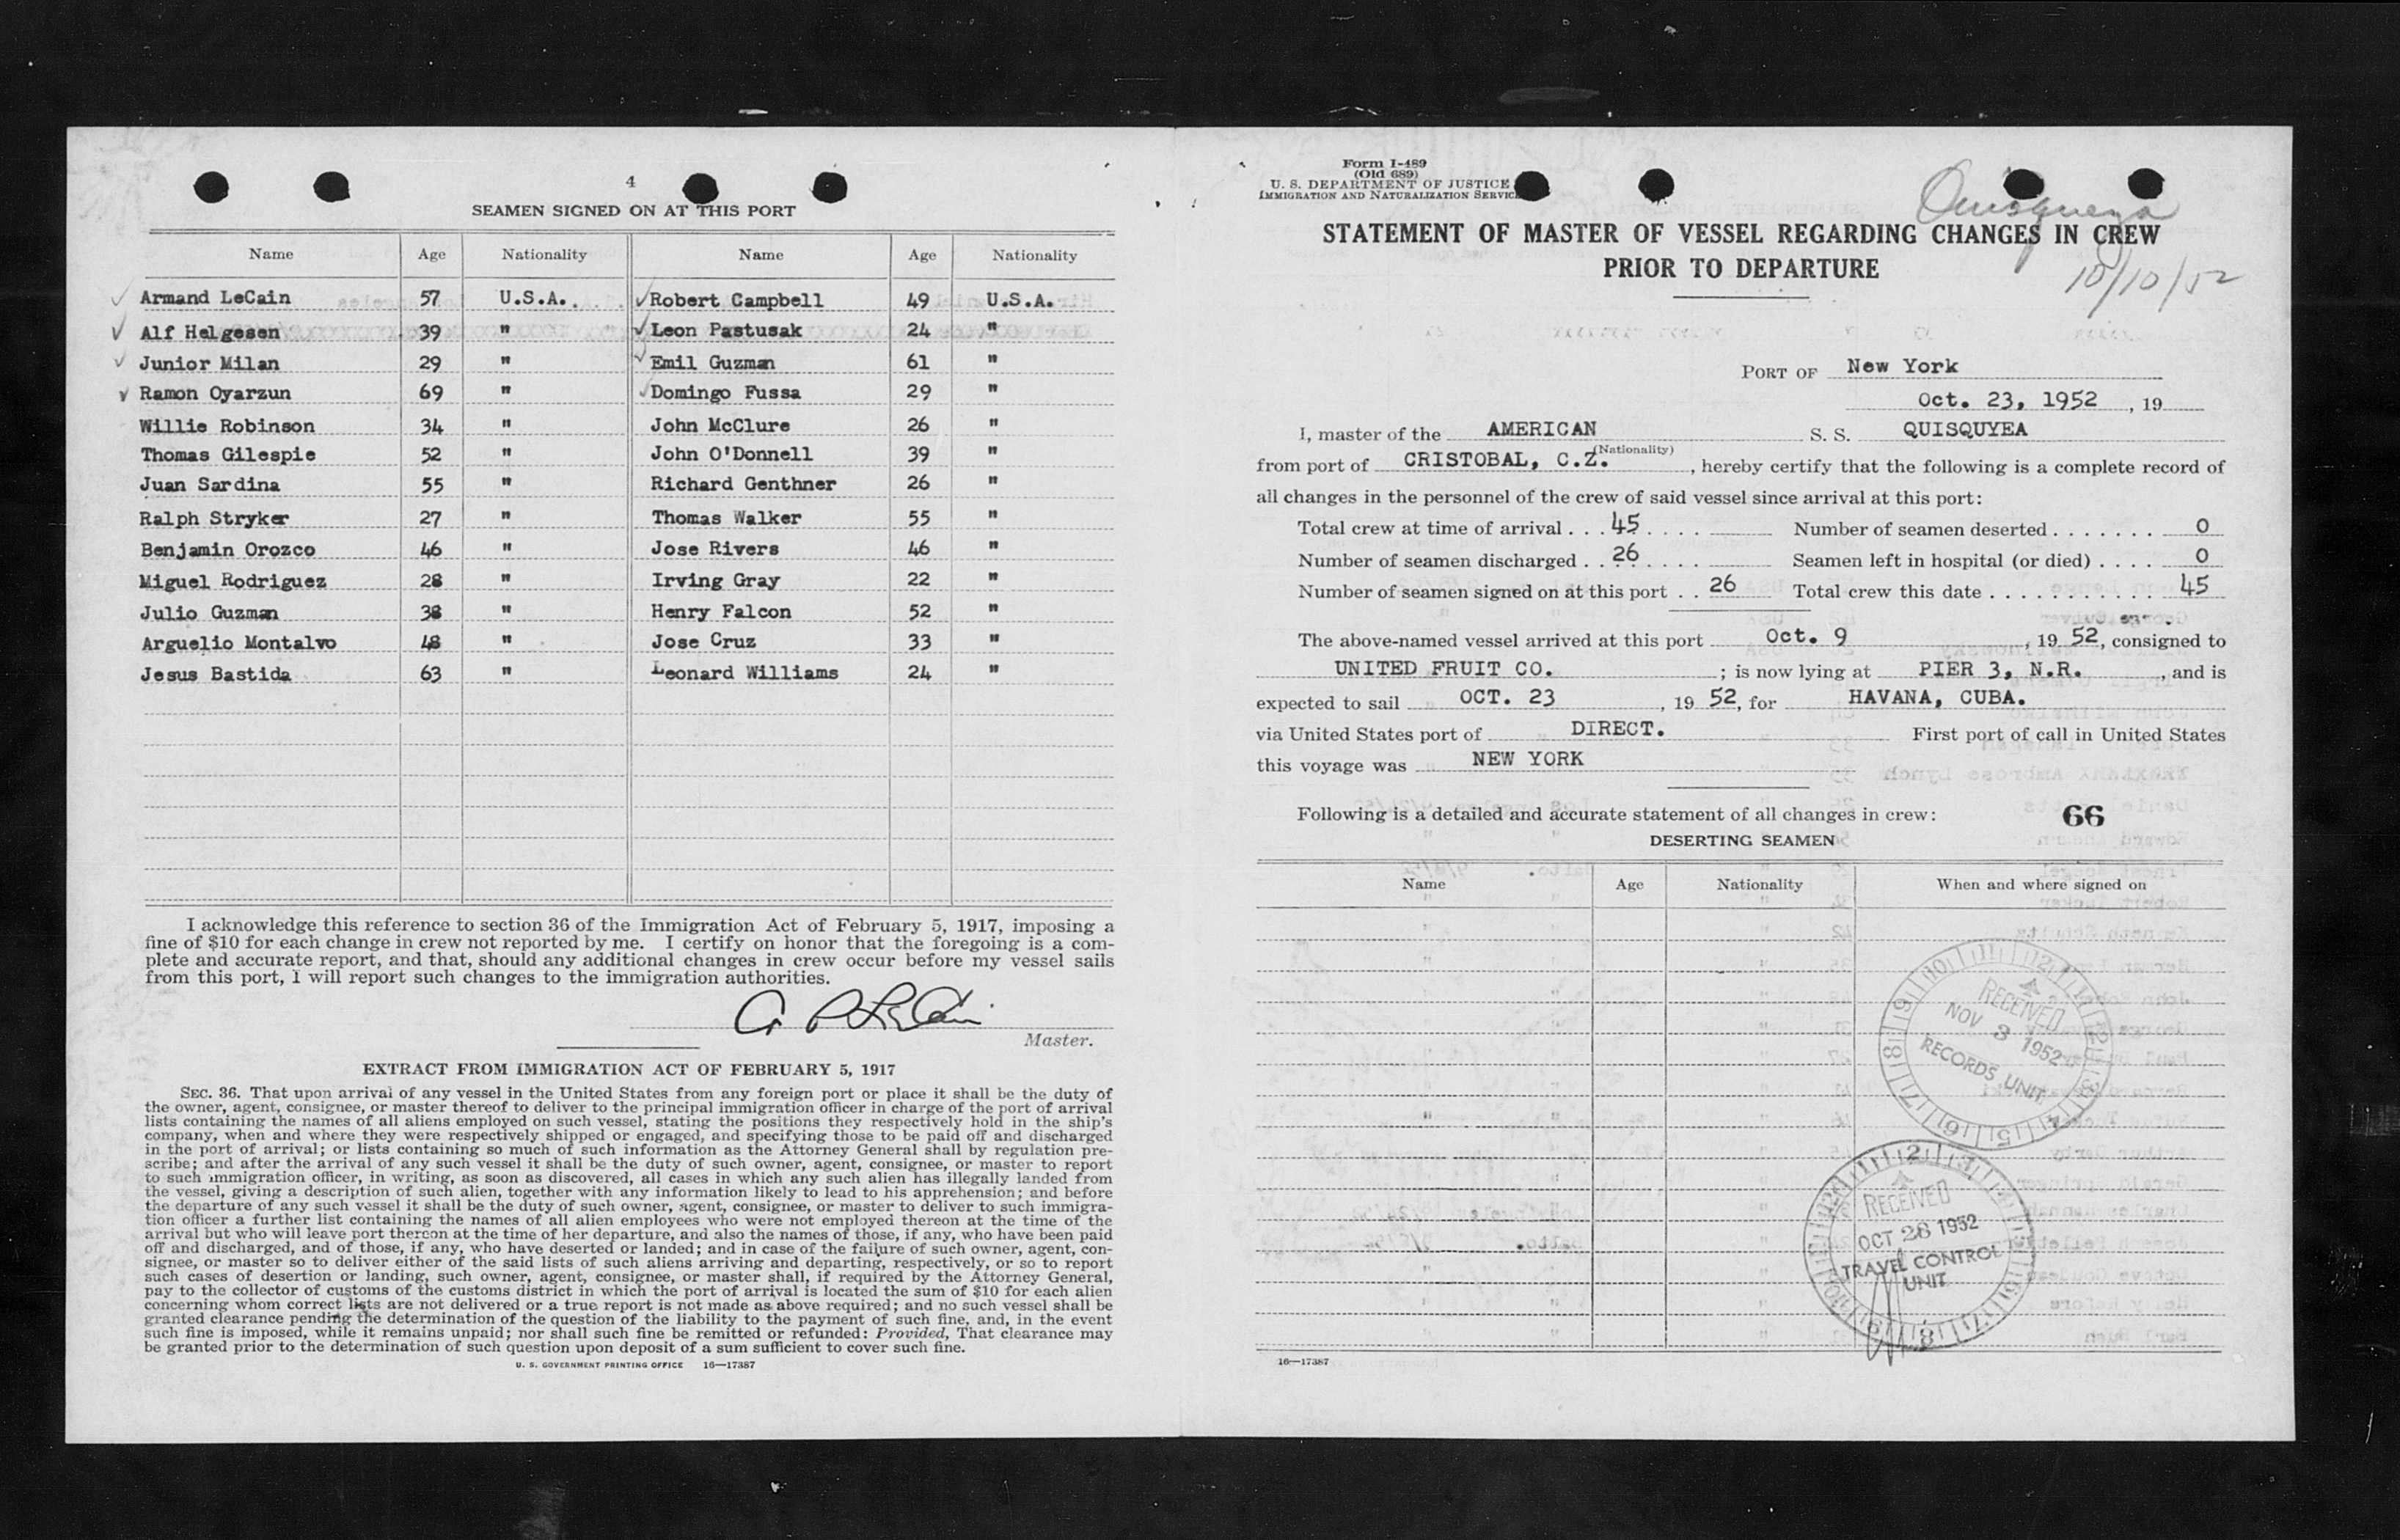 4
SEAMEN SIGNED ON AT THIS PORT
Name Age Nationality Name Age Nationality
Armand LeCain 57 U.S.A. Robert Campbell 49 U.S.A.
Alf Helgesen 39 " Leon Pastusak 24 "
Junior Milan 29 " Emil Guzman 61 "
Ramon Oyarzun 69 " Domingo Fussa 29 "
Willie Robinson 34 " John McClure 26 "
Thomas Gilespie 52 " John O'Donnell 39 "
Juan Sardina 55 " Richard Genthner 26 "
Ralph Stryker 27 " Thomas Walker 55 "
Benjamin Orozco 46 " Jose Rivers 46 "
Miguel Rodriguez 28 " Irving Gray 22 "
Julio Guzman 38 " Henry Falcon 52 "
Arguelio Montalvo 48 " Jose Cruz 33 "
Jesus Bastida 63 " Leonard Williams 24 "
I acknowledge this reference to section 36 of the Immigration Act of February 5, 1917, imposing a
fine of $10 for each change in crew not reported by me. I certify on honor that the foregoing is a com-
plete and accurate report, and that, should any additional changes in crew occur before my vessel sails
from this port, I will report such changes to the immigration authorities.
A P LeCain
Master.
EXTRACT FROM IMMIGRATION ACT OF FEBRUARY 5, 1917
SEC. 36. That upon arrival of any vessel in the United States from any foreign port or place it shall be the duty of
the owner, agent, consignee, or master thereof to deliver to the principal immigration officer in charge of the port of arrival
lists containing the names of all aliens employed on such vessel, stating the positions they respectively hold in the ship's
company, when and where they were respectively shipped or engaged, and specifying those to be paid off and discharged
in the port of arrival; or lists containing so much of such information as the Attorney General shall by regulation pre-
scribe; and after the arrival of any such vessel it shall be the duty of such owner, agent, consignee, or master to report
to such immigration officer, in writing, as soon as discovered, all cases in which any such alien has illegally landed from
the vessel, giving a description of such alien, together with any information likely to lead to his apprehension; and before
the departure of any such vessel it shall be the duty of such owner, agent, consignee, or master to deliver to such immigra-
tion officer a further list containing the names of all alien employees who were not employed thereon at the time of the
arrival but who will leave port thereon at the time of her departure, and also the names of those, if any, who have been paid
off and discharged, and of those, if any, who have deserted or landed; and in case of the failure of such owner, agent, con-
signee, or master so to deliver either of the said lists of such aliens arriving and departing, respectively, or so to report
such cases of desertion or landing, such owner, agent, consignee, or master shall, if required by the Attorney General,
pay to the collector of customs of the customs district in which the port of arrival is located the sum of $10 for each alien
concerning whom correct lists are not delivered or a true report is not made as above required; and no such vessel shall be
granted clearance pending the determination of the question of the liability to the payment of such fine, and, in the event
such fine is imposed, while it remains unpaid; nor shall such fine be remitted or refunded: Provided, That clearance may
be granted prior to the determination of such question upon deposit of a sum sufficient to cover such fine.
U. S. GOVERNMENT PRINTING OFFICE 16—17387
Form I-489
(Old 689)
U. S. DEPARTMENT OF JUSTICE
IMMIGRATION AND NATURALIZATION SERVICE
Quisqueya
10/10/52
STATEMENT OF MASTER OF VESSEL REGARDING CHANGES IN CREW
PRIOR TO DEPARTURE
PORT OF New York
Oct. 23, 1952, 19
I, master of the AMERICAN S. S. QUISQUYEA
(Nationality)
from port of CRISTOBAL, C.Z., hereby certify that the following is a complete record of
all changes in the personnel of the crew of said vessel since arrival at this port:
Total crew at time of arrival . . . 45 . . . . Number of seamen deserted . . . . . . . 0
Number of seamen discharged . . 26 . . . . Seamen left in hospital (or died) . . . . 0
Number of seamen signed on at this port . . 26 Total crew this date . . . . . . . . . . . 45
The above-named vessel arrived at this port Oct. 9, 19 52, consigned to
UNITED FRUIT CO. ; is now lying at PIER 3, N.R. , and is
expected to sail OCT. 23, 19 52, for HAVANA, CUBA.
via United States port of DIRECT. First port of call in United States
this voyage was NEW YORK
Following is a detailed and accurate statement of all changes in crew: 66
DESERTING SEAMEN
Name Age Nationality When and where signed on
RECEIVED
NOV 3 1952
RECORDS UNIT
RECEIVED
OCT 28 1952
TRAVEL CONTROL
UNIT
16—17387